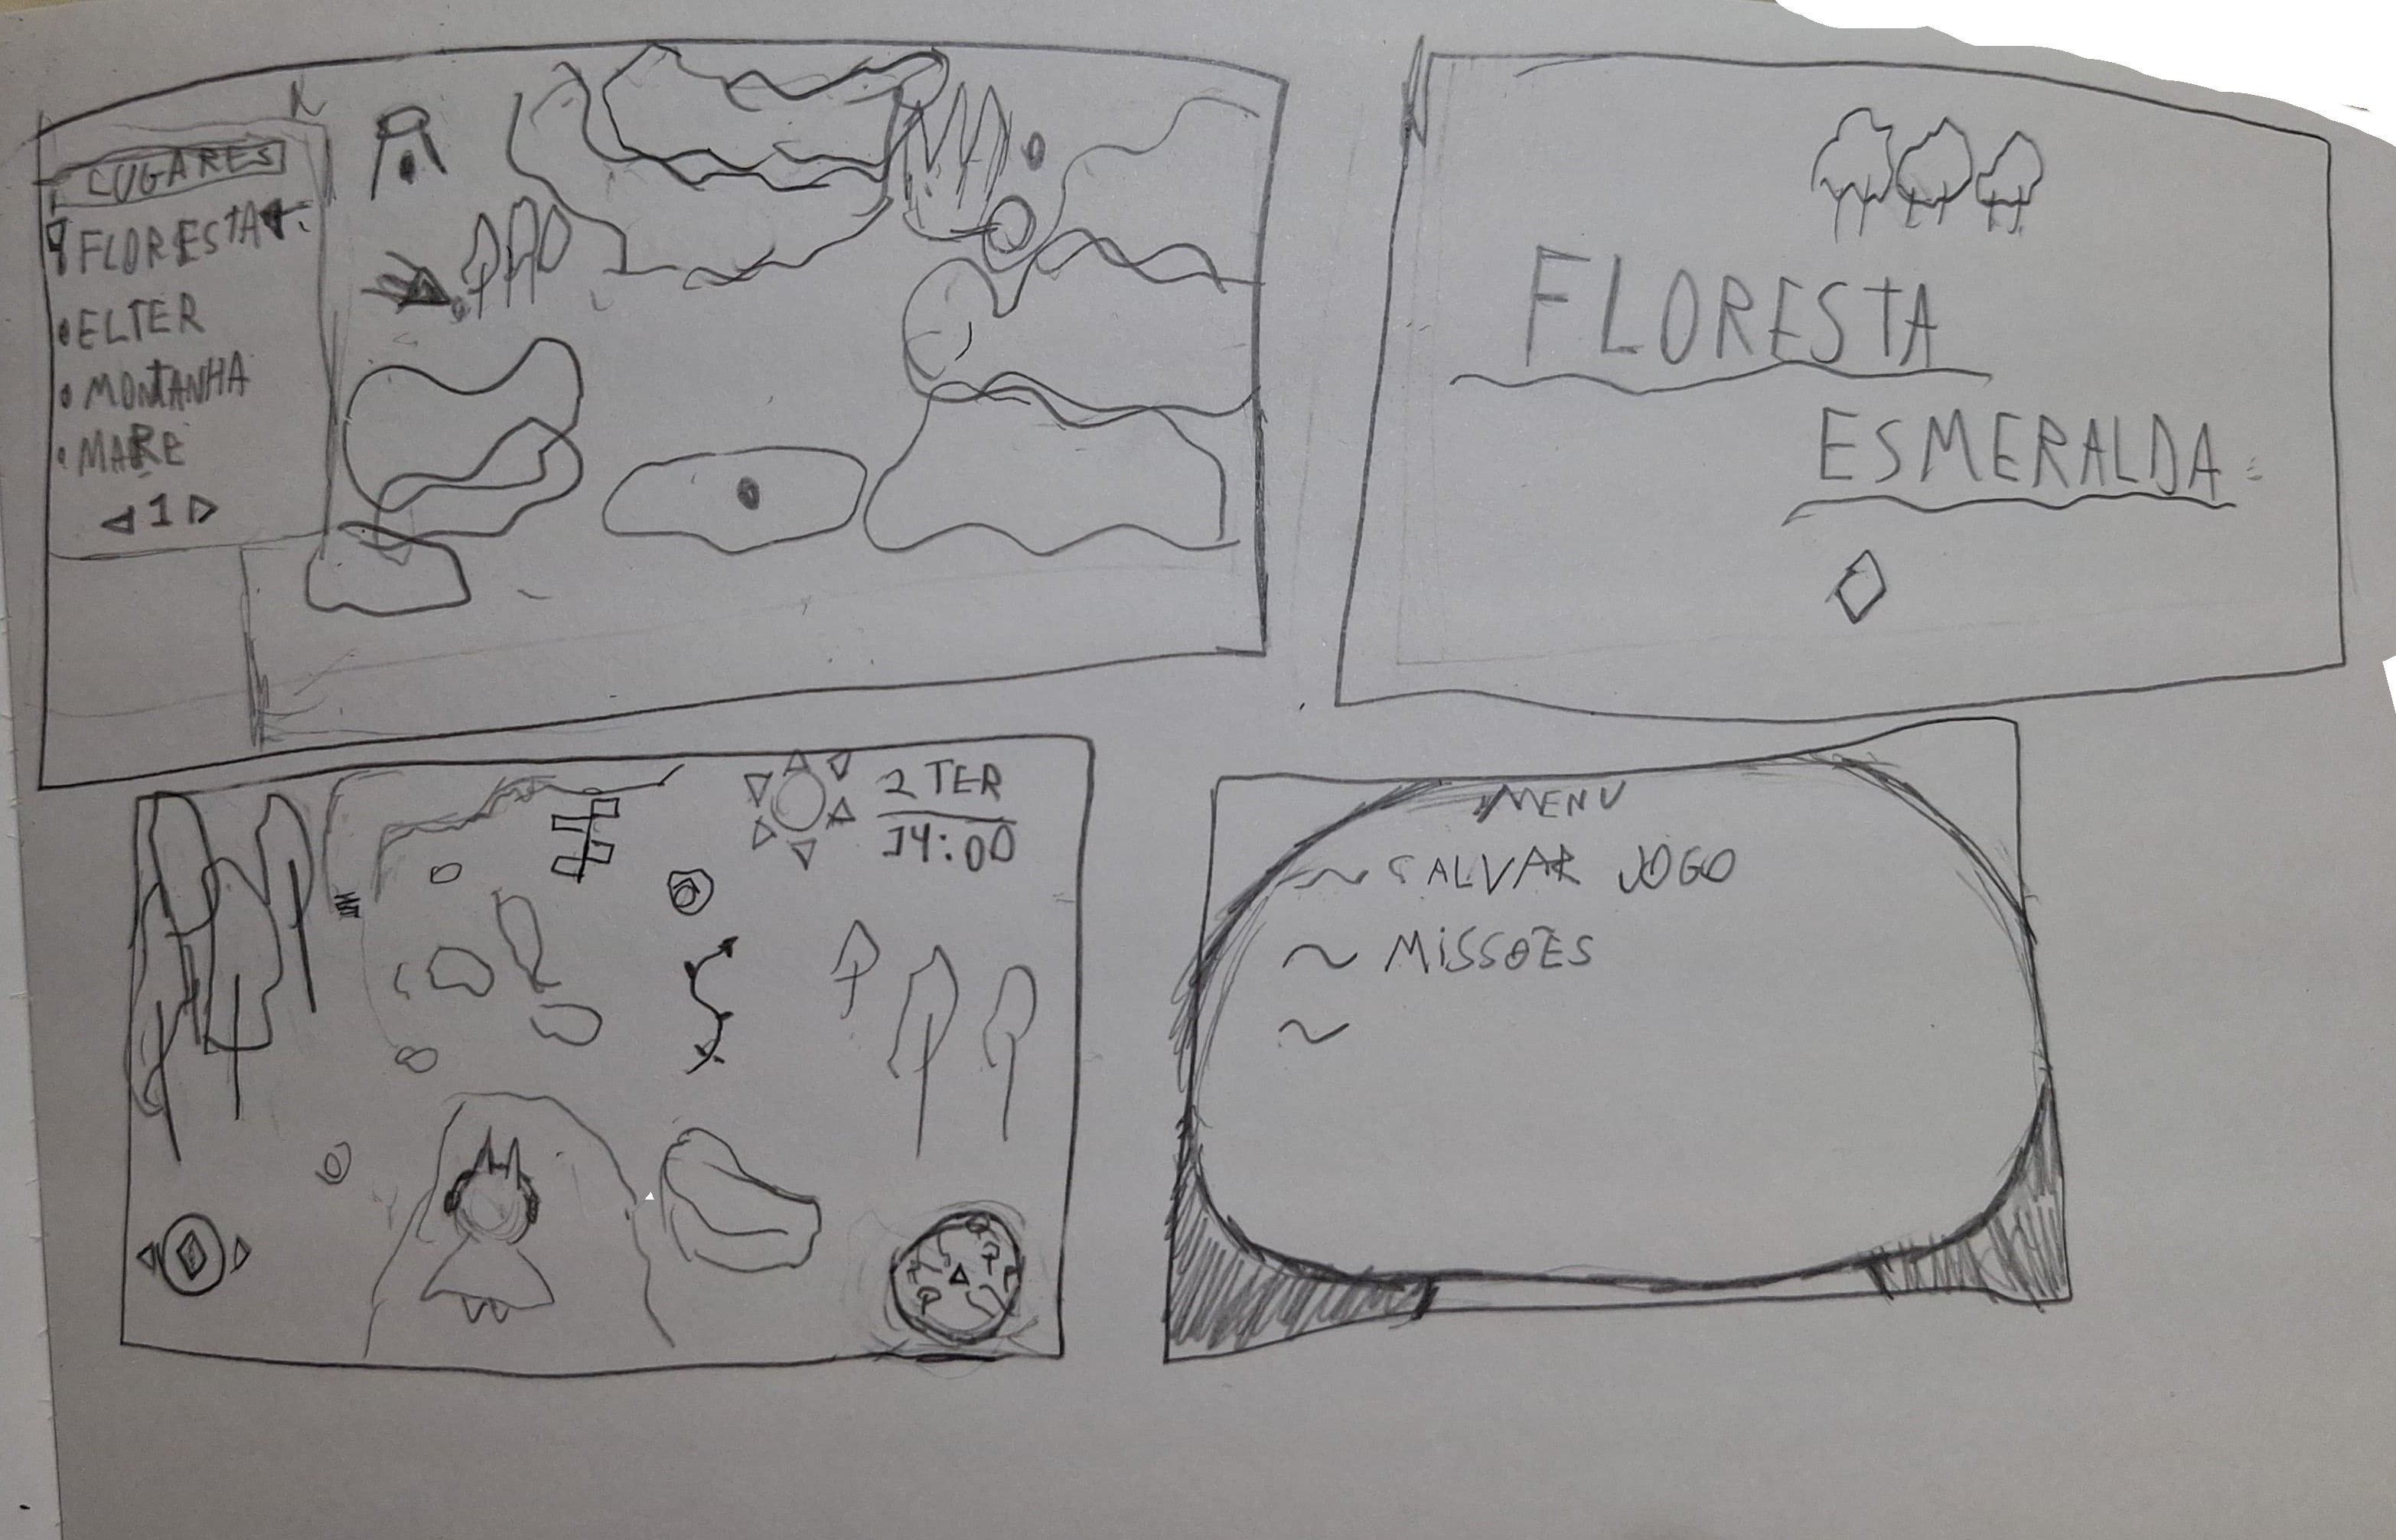 LUGARES
FLORESTA
ELTER
MONTANHA
MARE
1
FLORESTA
ESMERALDA
2 TER
14:00
MENU
~ SALVAR JOGO
~ MISSÕES
~